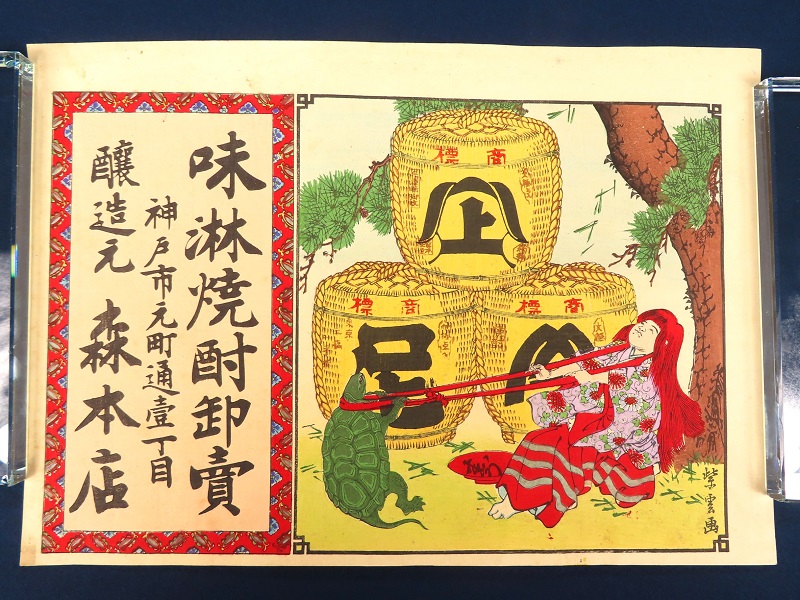 味淋焼酎卸賣
神戸市元町通壹丁目
醸造元 森本店
商標
上
商標
商標
紫雲画